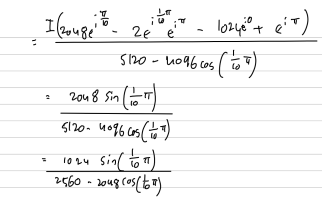 = I(2048e^{i π/10} - 2e^{i 1/10 π} e^{iπ} - 1024e^{i0} + e^{iπ}) / 5120 - 4096 cos(1/10 π)
= 2048 sin(1/10 π) / 5120 - 4096 cos(1/10 π)
= 1024 sin(1/10 π) / 2560 - 2048 cos(1/10 π)